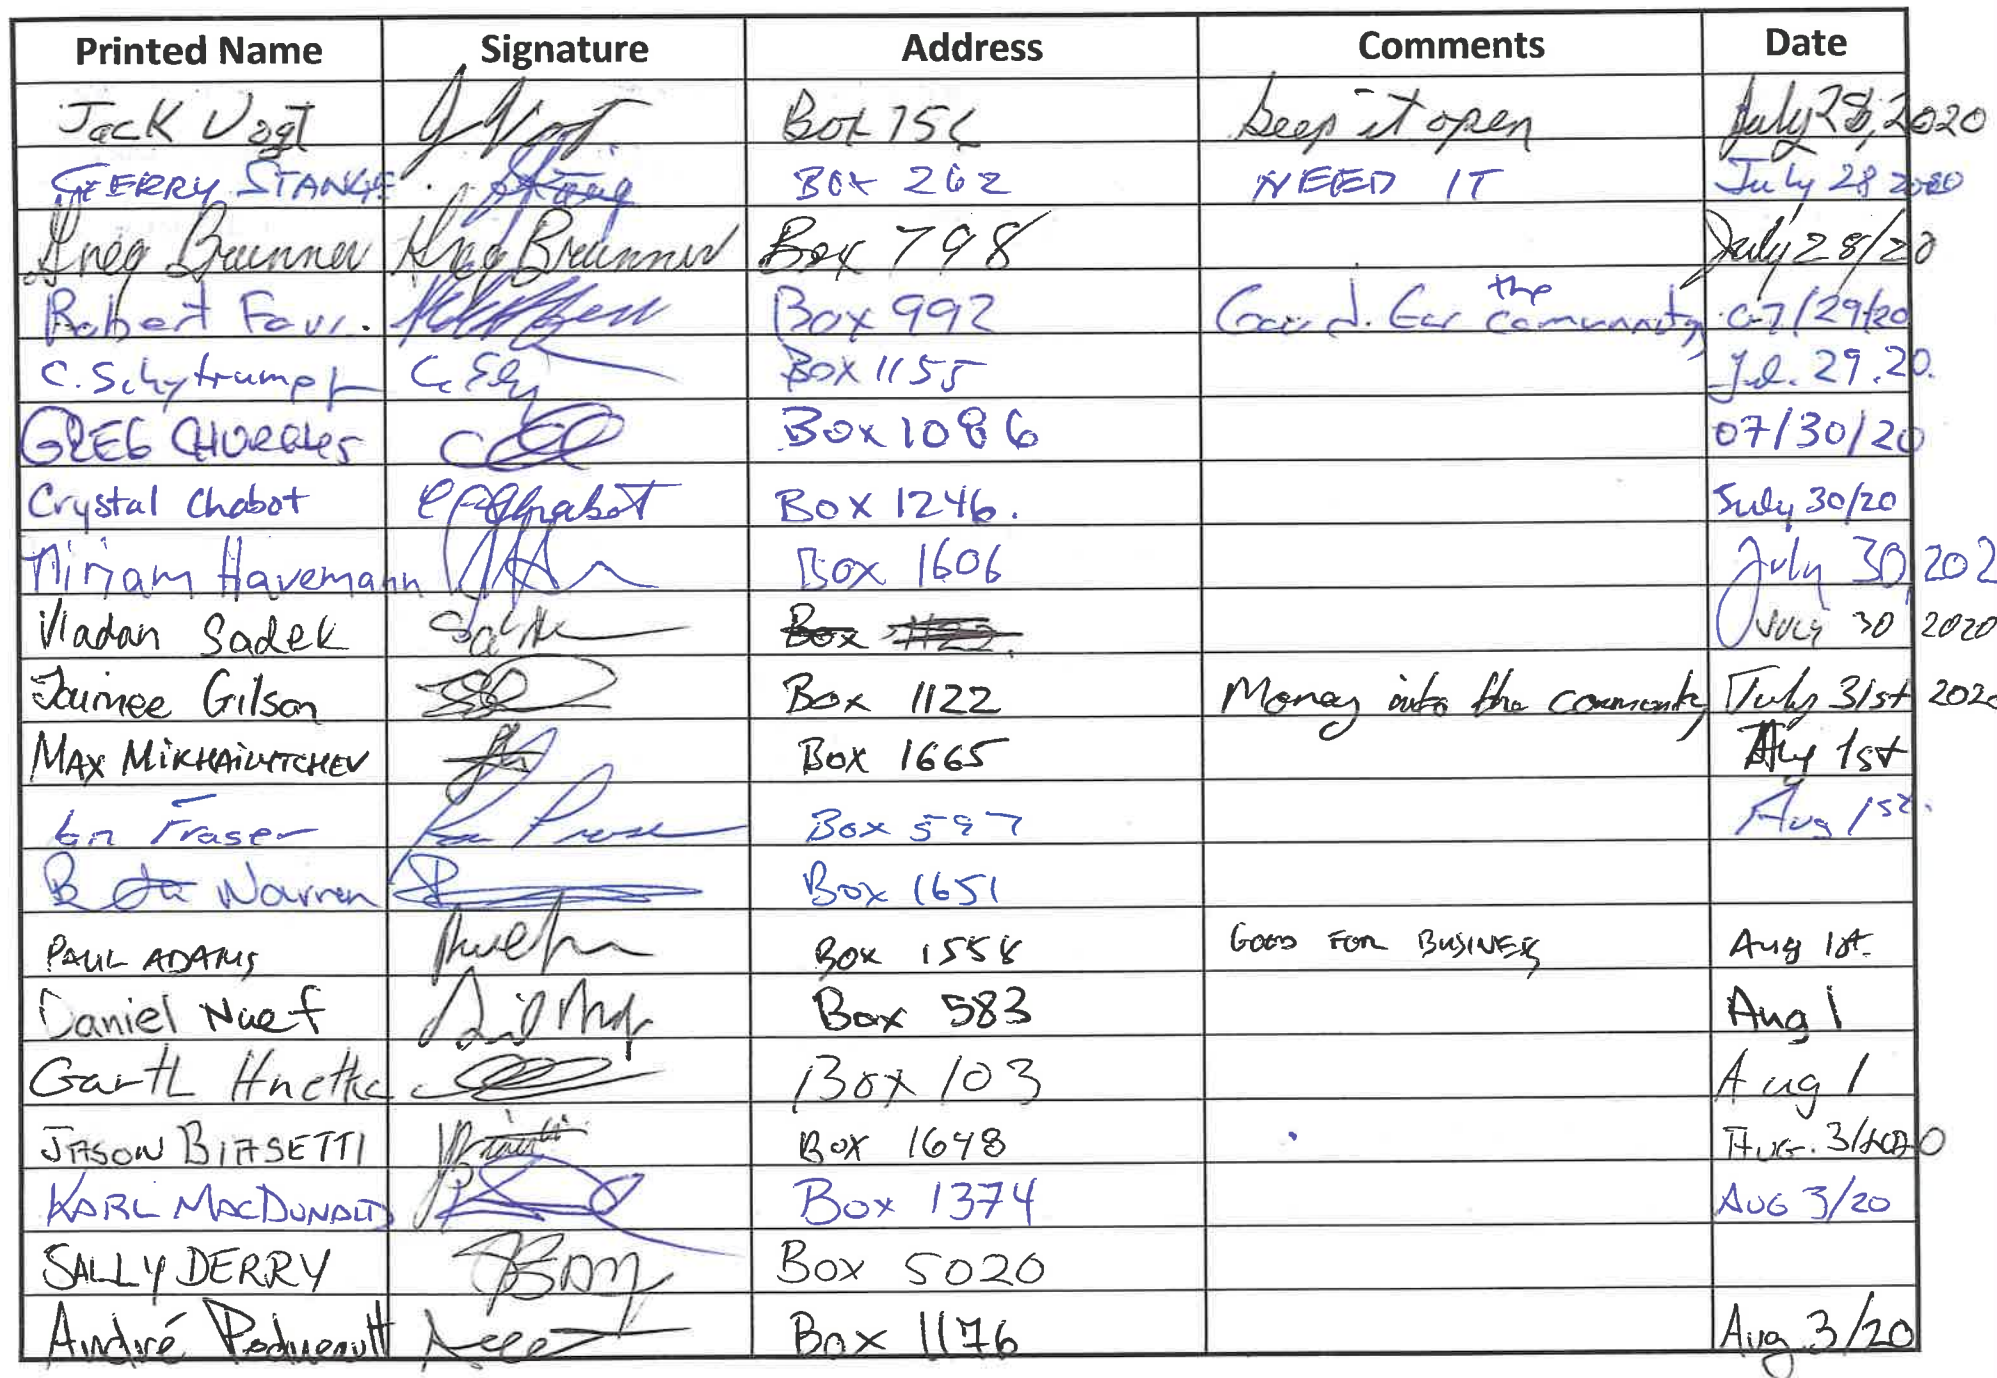 Printed Name Signature Address Comments Date
Jack Vogt J Vogt Box 756 keep it open July 28, 2020
GERRY STANGE Box 262 NEED IT July 28 2020
Greg Brunner Greg Brunner Box 798 July 28/20
Robert Box 992 Good. For the community 07/29/20
C. Schytrumpf Box 1155 Jul. 29.20.
GREG Box 1086 07/30/20
Crystal Chabot C Chabot Box 1246. July 30/20
Miriam Havemann Box 1606 July 30, 202
Vladan Sadek July 30 2020
Jaimee Gilson Box 1122 Money into the community July 31st 2020
MAX Box 1665 Aug 1st
Ian Fraser Box 597 Aug 1st.
Warren Box 1651
PAUL ADAMS Box 1558 GOOD FOR BUSINESS Aug 1st.
Daniel Nuef Box 583 Aug 1
Garth Box 103 Aug 1
JASON BIASETTI Box 1648 AUG. 3/2020
KARL MACDONALD Box 1374 AUG 3/20
SALLY DERRY Box 5020
André Box 1176 Aug 3/20